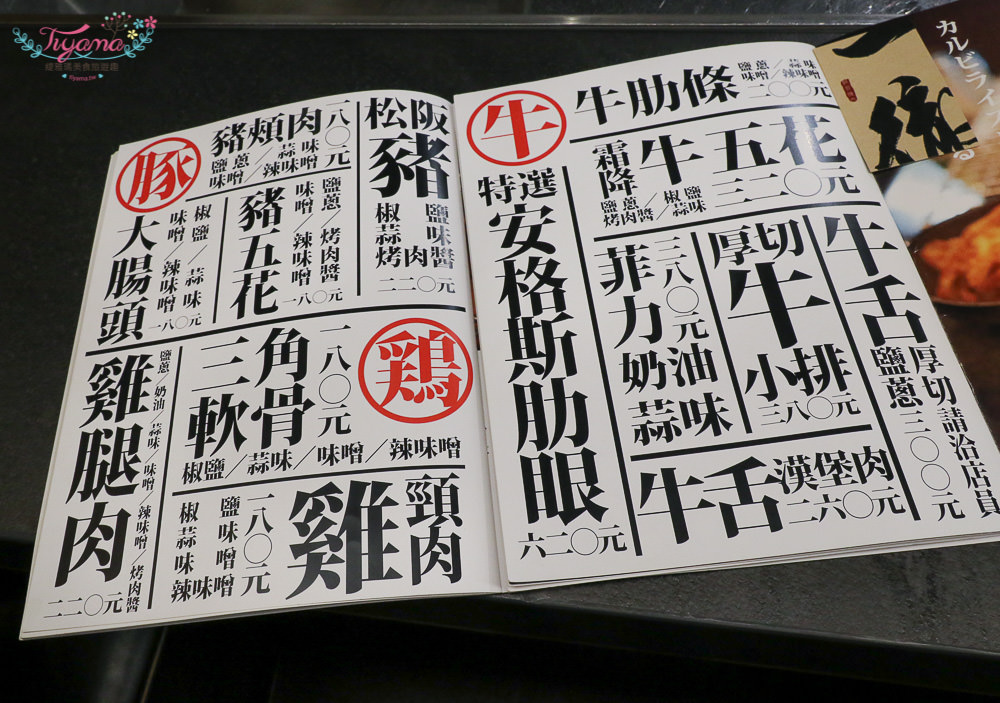 Tiyama
緹雅瑪美食旅遊趣
tiyama.tw
豚
豬頰肉
一八〇元
鹽蔥／蒜味
味噌／辣味噌
松阪豬
椒鹽
蒜味
烤肉醬
二二〇元
大腸頭
椒鹽／蒜味
味噌／辣味噌
一八〇元
豬五花
鹽蔥／烤肉醬
味噌／辣味噌
一八〇元
雞腿肉
鹽蔥／奶油／蒜味／味噌／辣味噌／烤肉醬
二二〇元
三角軟骨
一八〇元
椒鹽／蒜味／味噌／辣味噌
鶏
雞頸肉
一八〇元
椒鹽
蒜味
味噌
辣味噌
牛
牛肋條
鹽蔥／蒜味
味噌／辣味噌
二〇〇元
特選
安格斯肋眼
六二〇元
霜降牛五花
鹽蔥／椒鹽
烤肉醬／蒜味
三二〇元
菲力
三八〇元
奶油
蒜味
厚切
牛小排
三八〇元
牛舌
鹽蔥三〇〇元
厚切請洽店員
牛舌漢堡肉
二六〇元
カルビ
一級